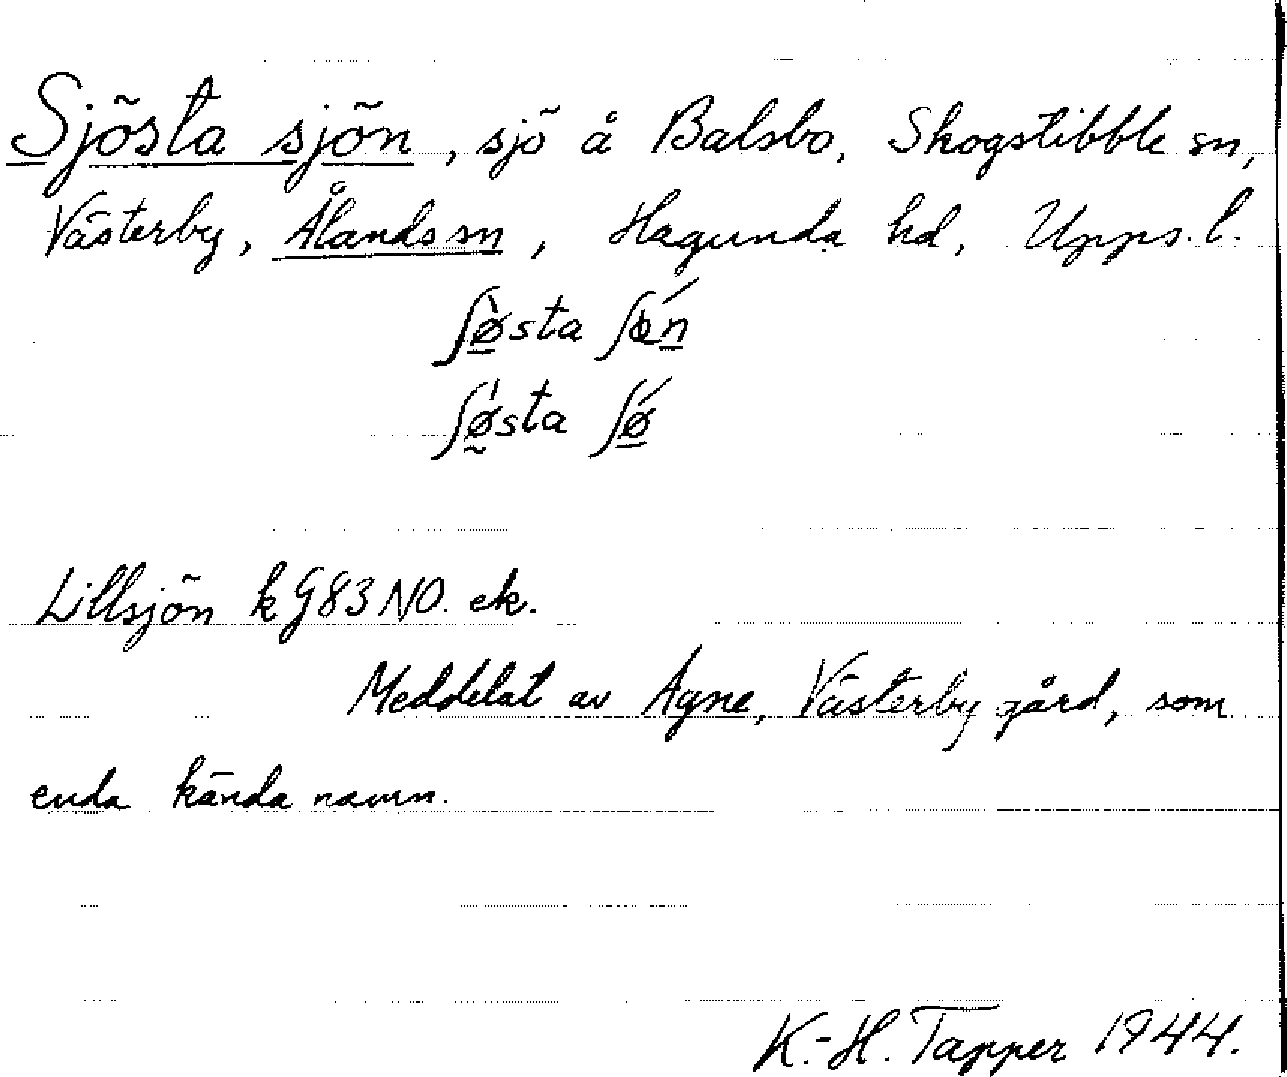 Sjösta sjön, sjö å Balsbo, Skogstibble sn,
Västerby, Ålands sn, Hagunda hd, Upps. l.
ʃø̀sta ʃǿn
ʃø̀sta ʃǿ
Lillsjön k G83 NO. ek.
Meddelat av Agne, Västerby gård, som
enda kända namn.
K.-H. Tapper 1944.